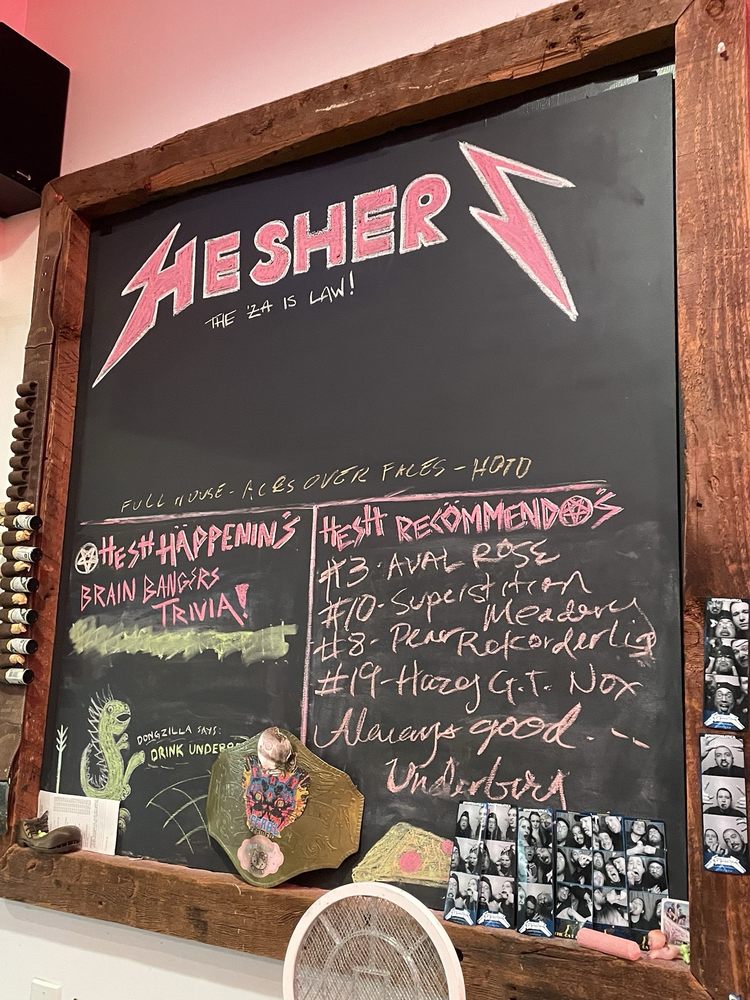 HESHER
THE 'ZA IS LAW!
FULL HOUSE - ACES OVER FACES - HOTD
HESH HÄPPENIN'S
BRAIN BANGERS
TRIVIA!
DONGZILLA SAYS:
DRINK
HESH RECÖMMENDO'S
#3 - AVAL ROSE
#10 - Superstition
Meadery
#8 - Pear Rekorderlig
#19 - Hazy G.T. Nox
Always good...
Underburg